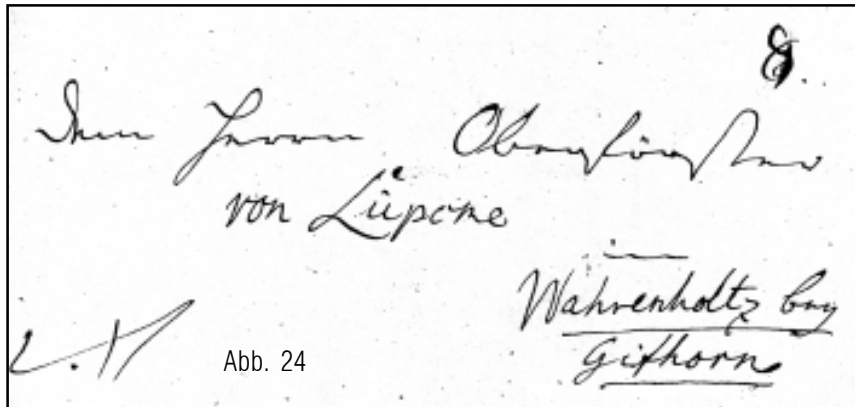 Dem Herrn Oberförster
von Lüpcme
in
Wahrenholtz bey
Gifhorn
Abb. 24